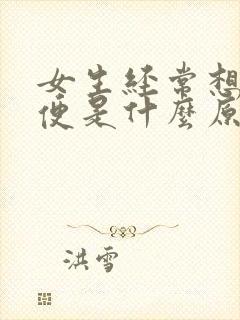 女生経常想
便是什麼原
洪雪